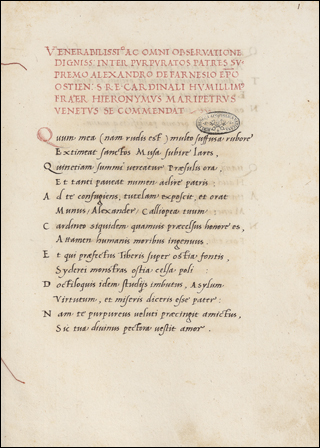 1
VENERABILISSIº AC OMNI OBSERVATIONE
DIGNISS. INTER PVRPVRATOS PATRES SV,
PREMO ALEXANDRO DEFARNESIO EPO
OSTIEN. S R E CARDINALI HVMILL. IMꝰ
FRATER HIERONYMVS MARIPETRVS
VENETVS SE COMMENDAT
Quum mea (nam rudis est) multo suffusa rubore
Extimeat sanctos Musa subire lares,
Quinetiam summi vereatur Præsulis ora,
Et tanti paveat numen adire patris
Ad te confugiens, tutelam exposcit, et orat
Munus Alexander Calliopea tuum:
Cardineo siquidem quamvis præcelsus honore es,
Attamen humanis moribus ingenuus.
Et qui præfectus Tiberis super ostia fontis,
Syderei monstras ostia celsa poli:
Doctiloquis idem studijs imbutus, Asylum
Virtutum, et miseris diceris esse pater:
Nam te purpureus veluti præcingit amictus,
Sic tua divinus pectora vestit amor.